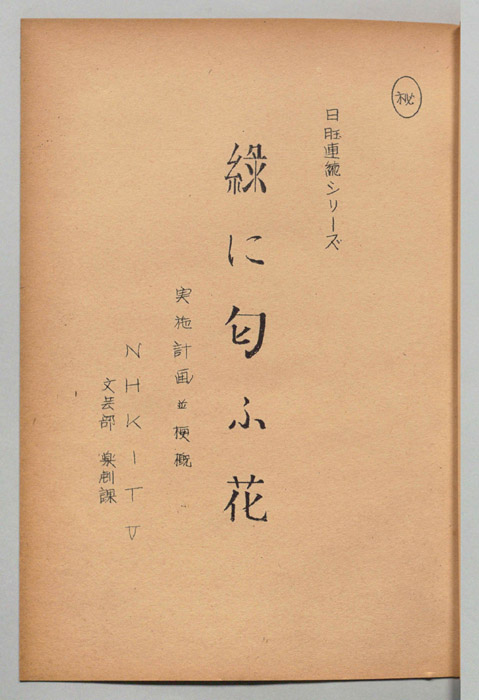 秘
日旺連続シリーズ
緑に匂ふ花
実施計画並梗概
NHKITV
文芸部 楽劇課